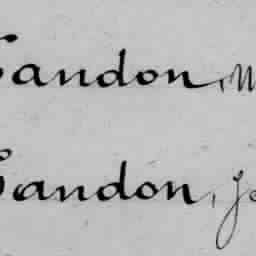 Candon, M
Candon, Jo